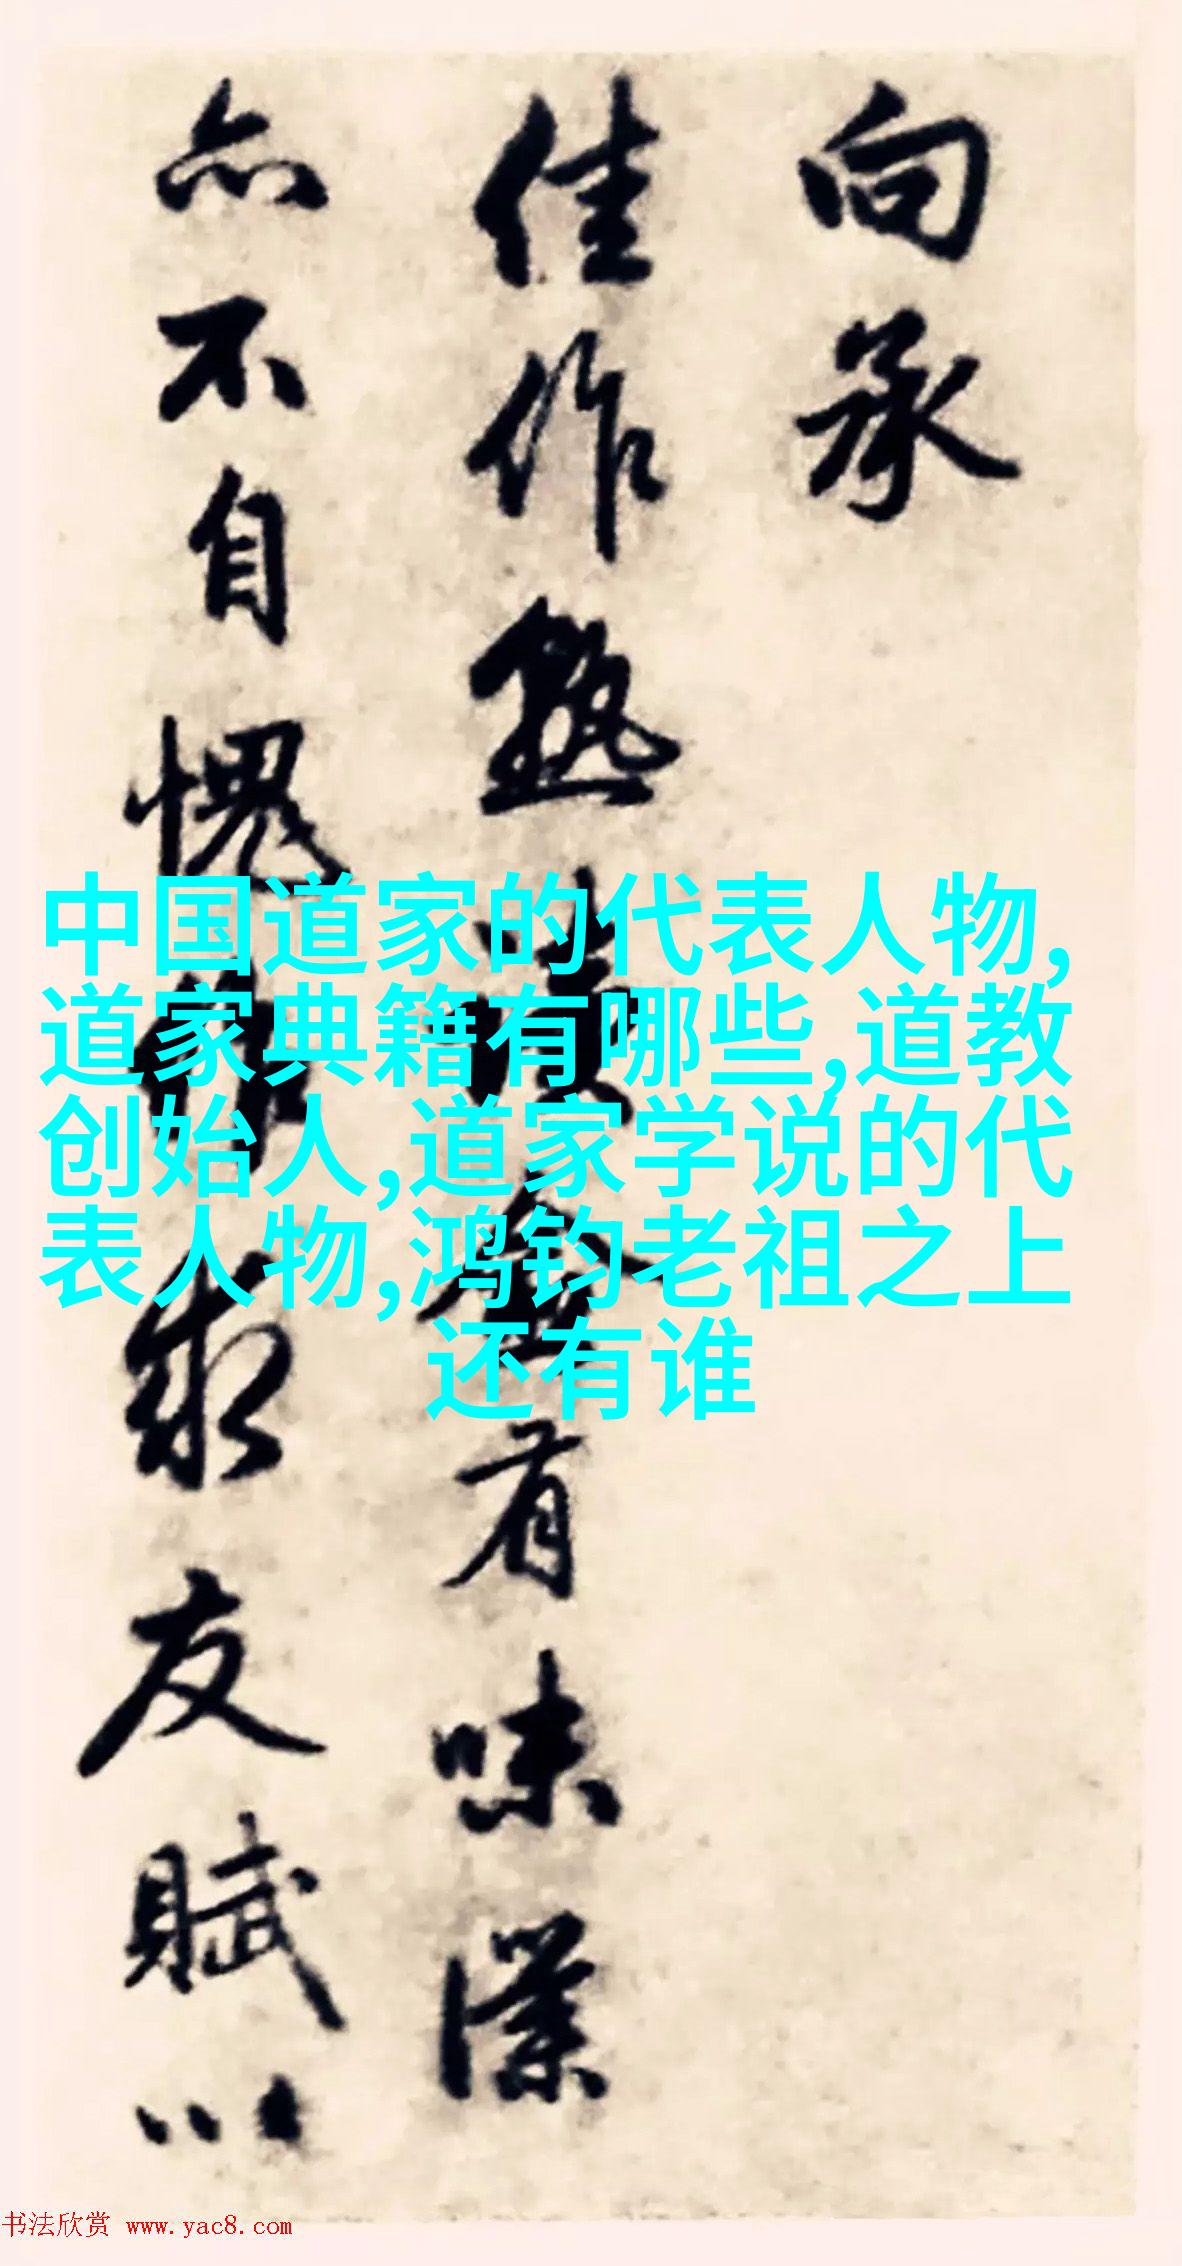 向承
佳作熟有味
亦不自愧求友賦以
中国道家的代表人物,
道家典籍有哪些,道教
创始人,道家学说的代
表人物,鸿钧老祖之上
还有谁
书法欣赏 www.yac8.com